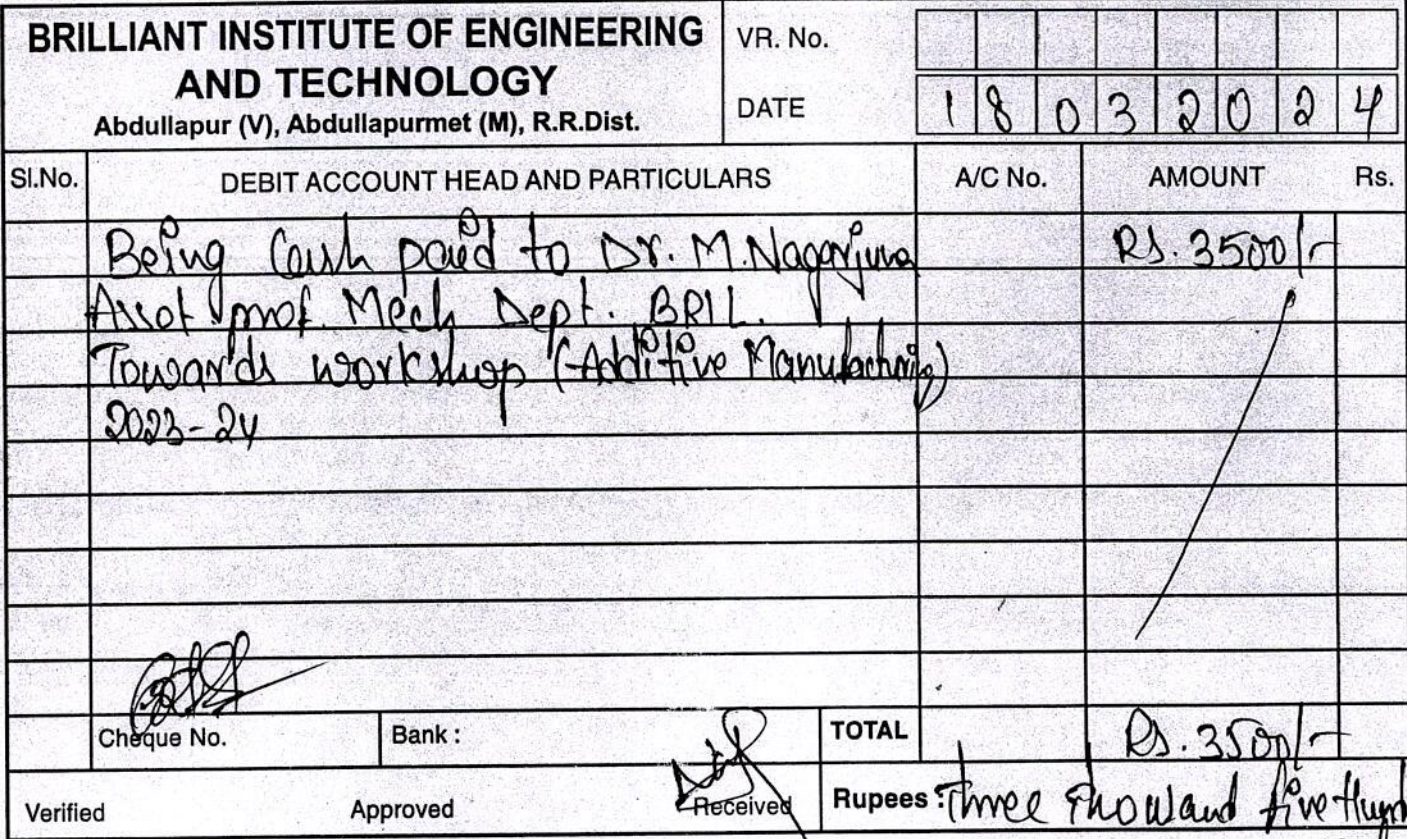 BRILLIANT INSTITUTE OF ENGINEERING
AND TECHNOLOGY
Abdullapur (V), Abdullapurmet (M), R.R.Dist.
VR. No.
DATE 18032024
Sl.No. DEBIT ACCOUNT HEAD AND PARTICULARS A/C No. AMOUNT Rs.
Being Cash paid to Dr. M. Nagarjuna Rs. 3500/-
Assot prof. Mech Dept. BRIL.
Towards workshop (Additive Manufacturing)
2023-24
Cheque No. Bank : TOTAL Rs. 3500/-
Verified Approved Received Rupees : Three Thousand five Hund